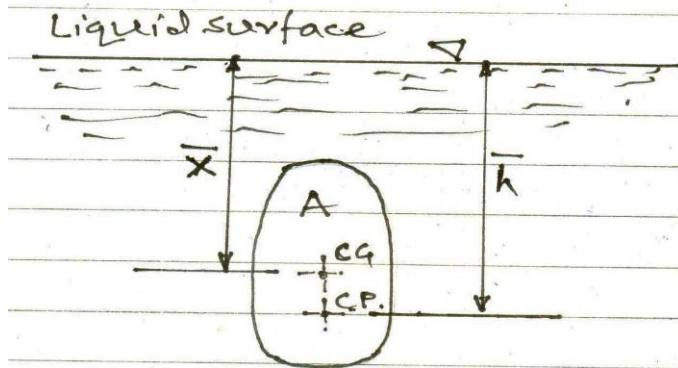 Liquid surface
x̄
h̄
A
CG
C.P.